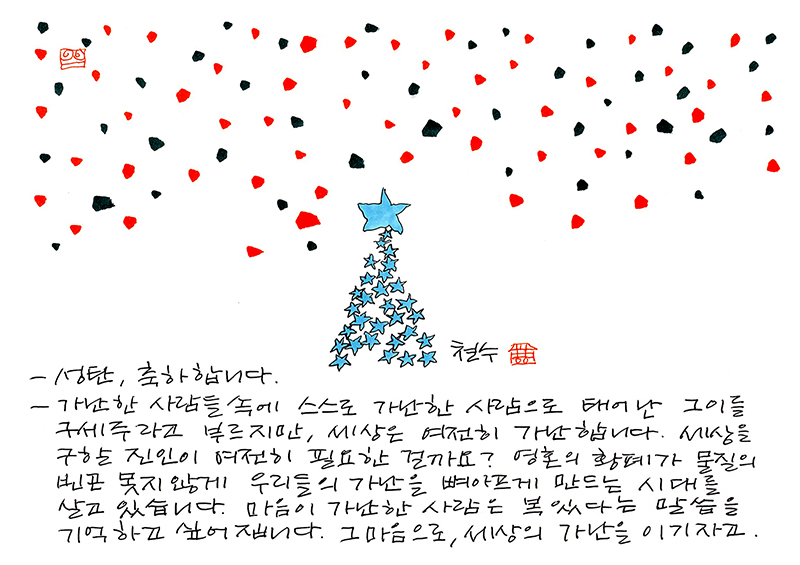 철수
- 성탄, 축하합니다.
- 가난한 사람들 속에 스스로 가난한 사람으로 태어난 그이를
구세주라고 부르지만, 세상은 여전히 가난합니다. 세상을
구할 진인이 여전히 필요한 걸까요? 영혼의 황폐가 물질의
빈곤 못지않게 우리들의 가난을 뼈아프게 만드는 시대를
살고 있습니다. 마음이 가난한 사람은 복 있다는 말씀을
기억하고 싶어집니다. 그 마음으로, 세상의 가난을 이기자고.